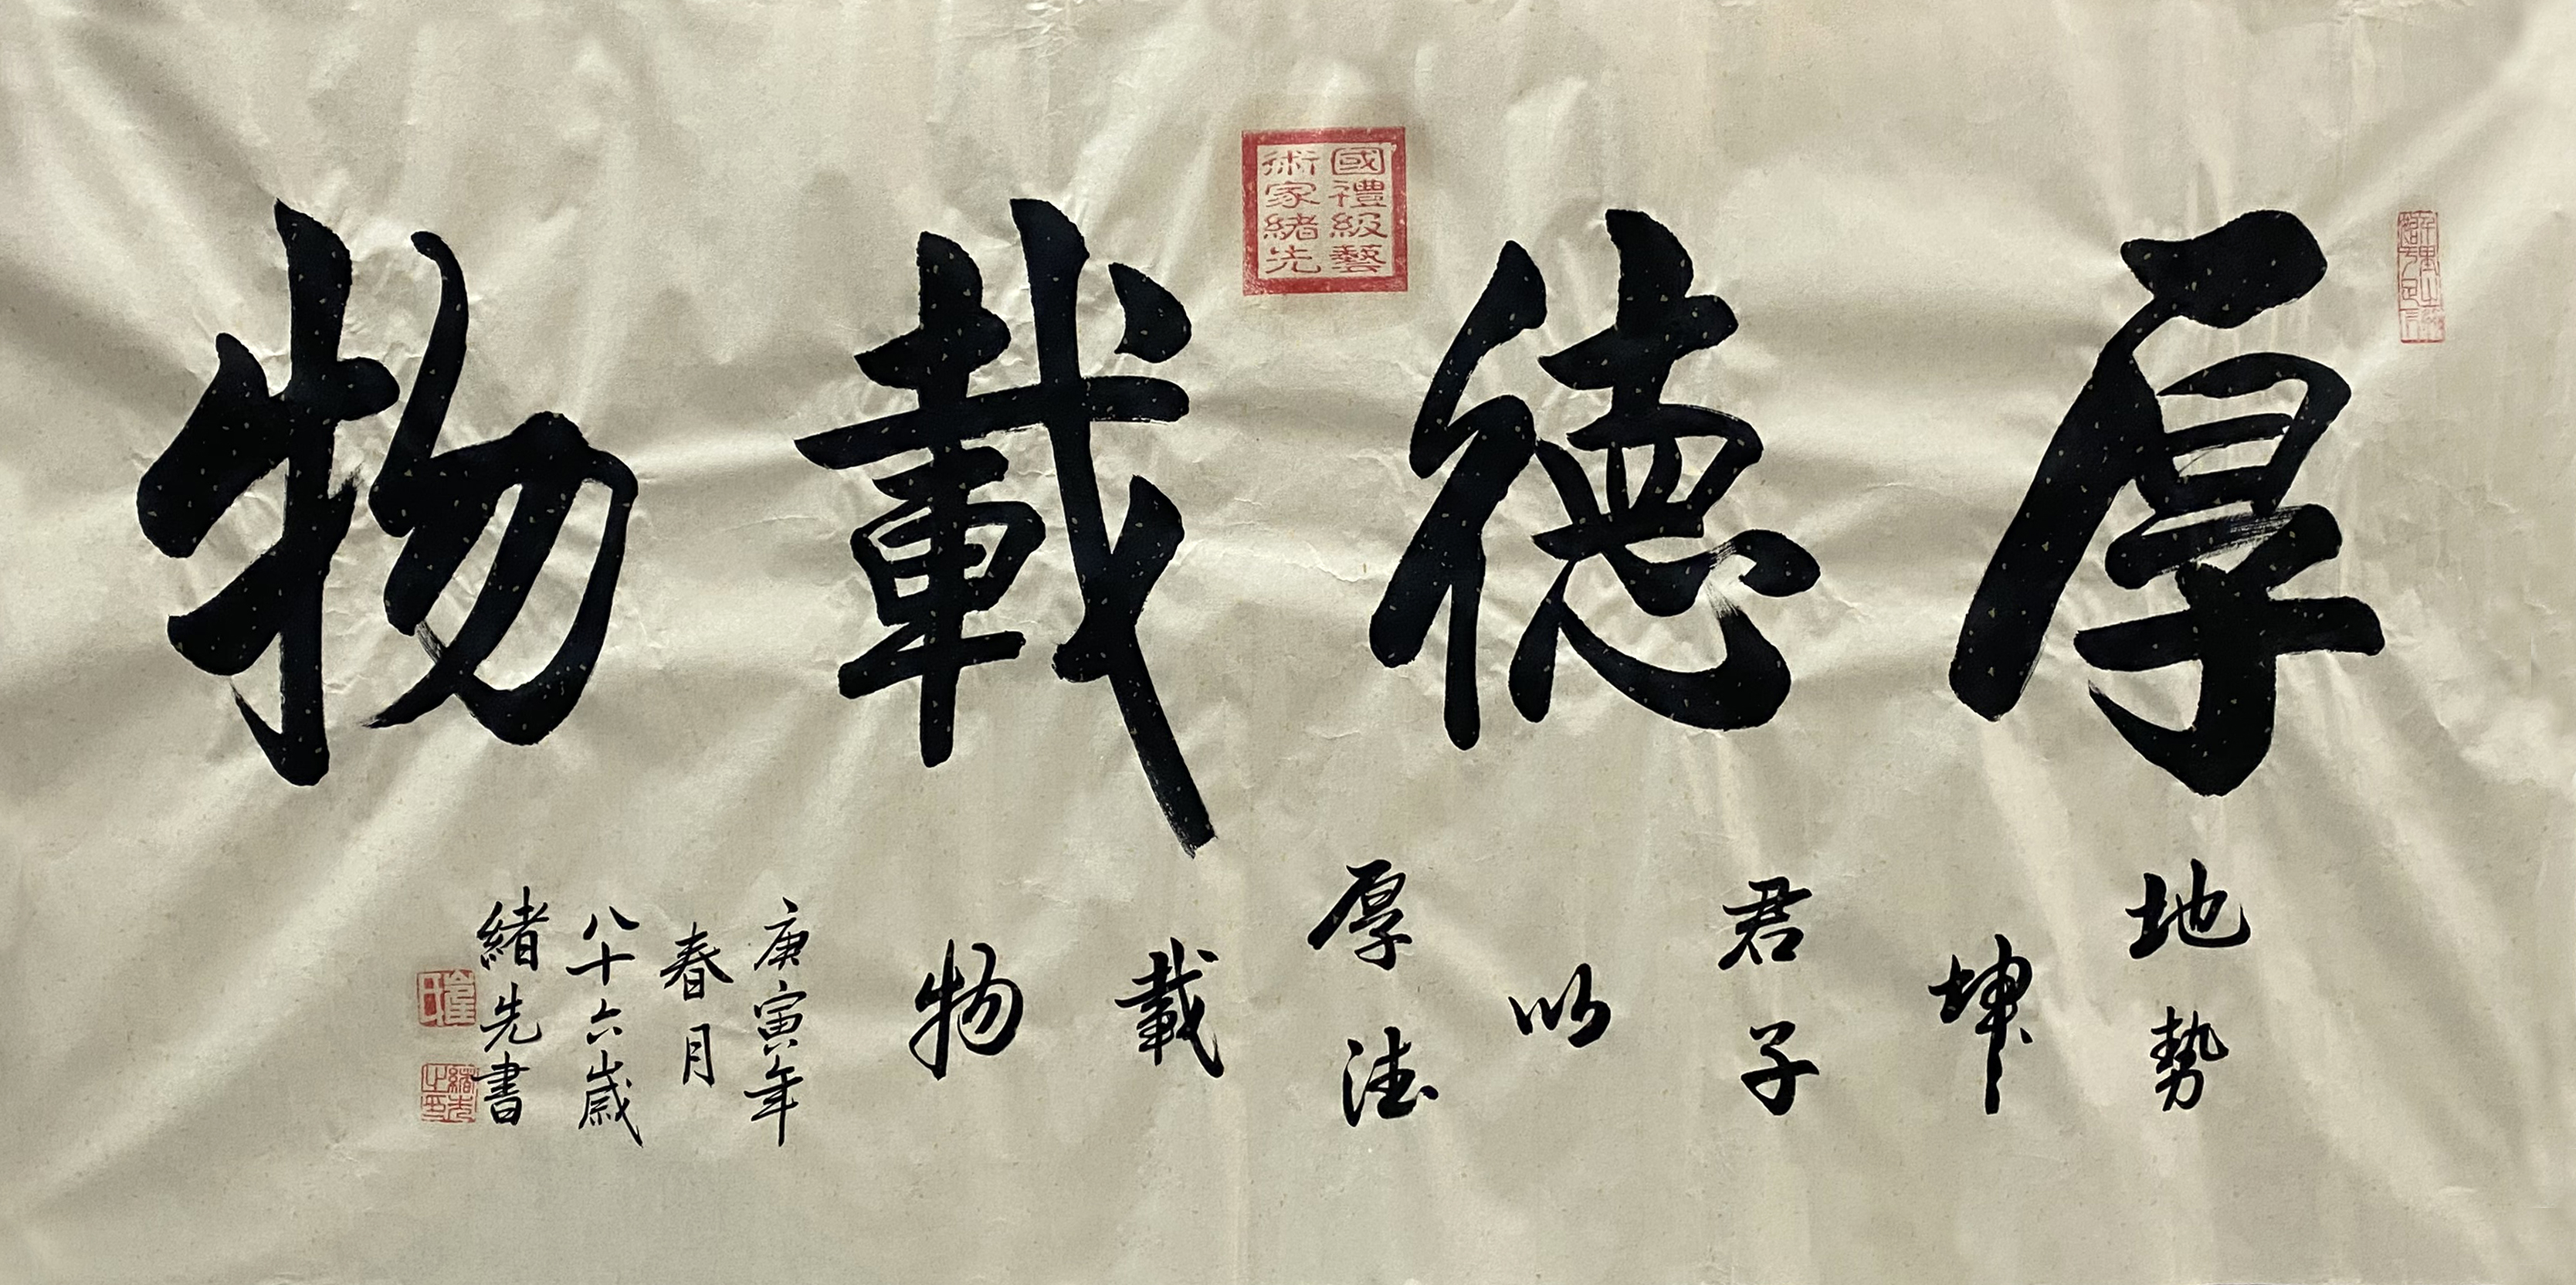 厚德載物
國禮級藝
術家緒先
地势
坤
君子
以
厚德
載
物
庚寅年
春月
八十六歲
緒先書
緒先之印